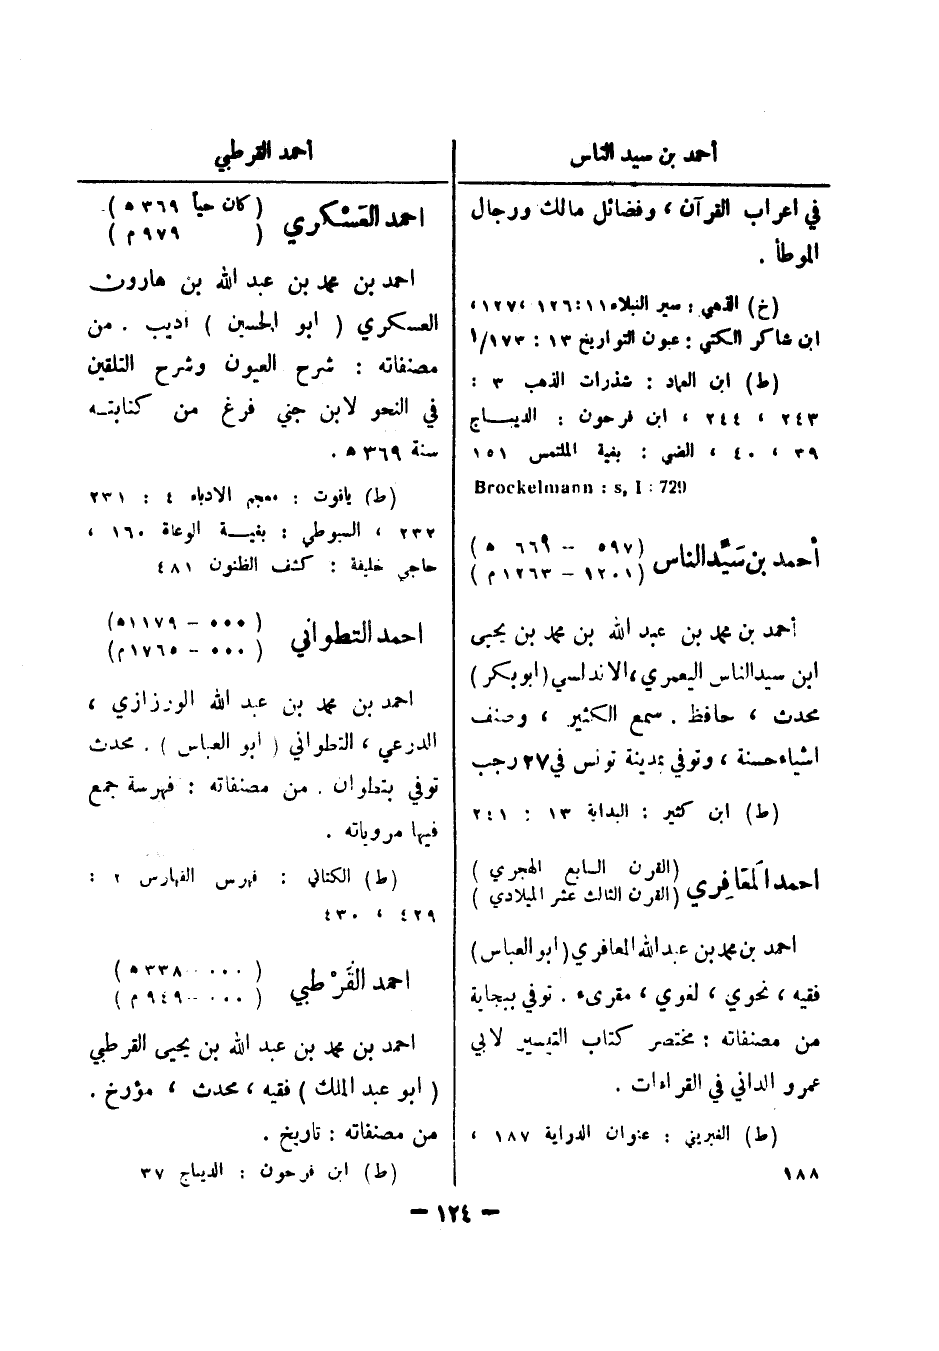 أحمد بن سيد الناس
في اعراب القرآن ، وفضائل مالك ورجال
الموطأ .
(خ) الذهبي : سير النبلاء ١١ : ١٢٦ ، ١٢٧ ،
ابن شاكر الكتبي : عيون التواريخ ١٣ : ١٧٣/ ١
(ط) ابن العماد : شذرات الذهب ٣ :
٢٤٣ ، ٢٤٤ ، ابن فرحون : الديبـــاج
٣٩ ، ٤٠ ، الضبي : بغية الملتمس ١٥١
Brockelmann : s, I : 729
أحمد بن سَيِّد الناس (٥٩٧ – ٦٦٩ ه )
(١٢٠١ – ١٢٦٣ م )
أحمد بن محمد بن عبد الله بن محمد بن يحيى
ابن سيد الناس اليعمري ، الاندلسي (ابو بكر)
محدث ، حافظ . سمع الكثير ، وصنف
اشياء حسنة ، وتوفي بمدينة تونس في ٢٧ رجب
(ط) ابن كثير : البداية ١٣ : ٢٤١
احمد المَعَافِري (القرن السابع الهجري )
(القرن الثالث عشر الميلادي )
احمد بن محمد بن عبد الله المعافري (ابو العباس)
فقيه ، نحوي ، لغوي ، مقرىء . توفي ببجاية
من مصنفاته : مختصر كتاب التيسير لابي
عمرو الداني في القراءات .
(ط) الغبريني : عنوان الدراية ١٨٧ ،
١٨٨
أحمد القرطبي
احمد العَسْكري (كان حياً ٣٦٩ ه )
( ٩٧٩ م )
احمد بن محمد بن عبد الله بن هارون
العسكري ( ابو الحسين ) أديب . من
مصنفاته : شرح العيون وشرح التلقين
في النحو لابن جني فرغ من كتابتــه
سنة ٣٦٩ ه .
(ط) ياقوت : معجم الادباء ٤ : ٢٣١
٢٣٢ ، السيوطي : بغيــة الوعاة ١٦٠ ،
حاجي خليفة : كشف الظنون ٤٨١
احمد التطواني (٠٠٠ – ١١٧٩ ه)
(٠٠٠ – ١٧٦٥ م)
احمد بن محمد بن عبد الله الورزازي ،
الدرعي ، التطواني ( ابو العباس ) . محدث
توفي بتطوان . من مصنفاته : فهرسة جمع
فيها مروياته .
(ط) الكتاني : فهرس الفهارس ٢ :
٤٢٩ ، ٤٣٠
احمد القُرْطبي (٠٠٠ – ٣٣٨ ه )
(٠٠٠ – ٩٤٩ م )
احمد بن محمد بن عبد الله بن يحيى القرطبي
( ابو عبد الملك ) فقيه ، محدث ، مؤرخ .
من مصنفاته : تاريخ .
(ط) ابن فرحون : الديباج ٣٧
– ١٢٤ –